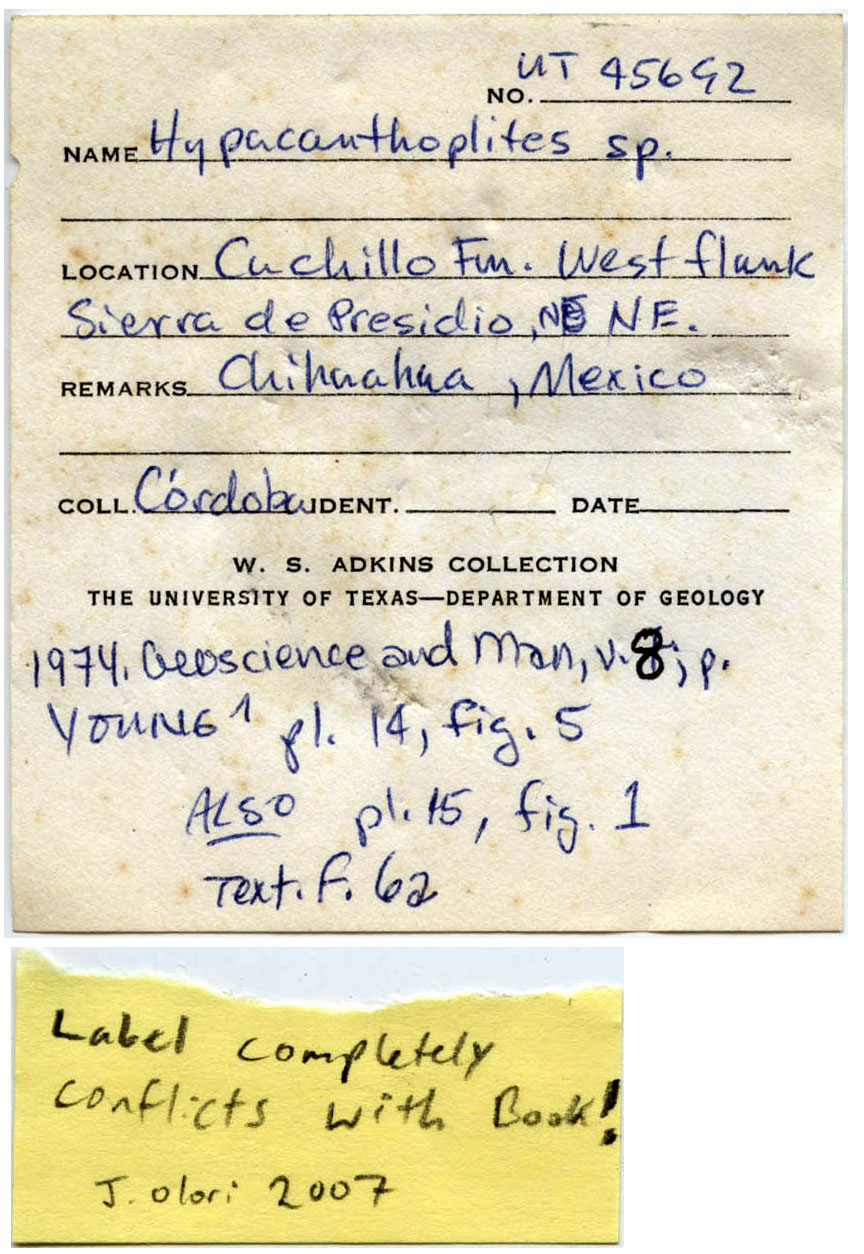 UT 45692
NO.
NAME Hypacanthoplites sp.
LOCATION Cuchillo Fm. West flank
Sierra de Presidio, NE.
REMARKS Chihuahua, Mexico
COLL. Córdoba IDENT. DATE
W. S. ADKINS COLLECTION
THE UNIVERSITY OF TEXAS—DEPARTMENT OF GEOLOGY
1974. Geoscience and Man, v. 8; p.
YOUNG pl. 14, fig. 5
ALSO pl. 15, fig. 1
Text. f. 6a
Label completely
conflicts with Book!
J. Olori 2007